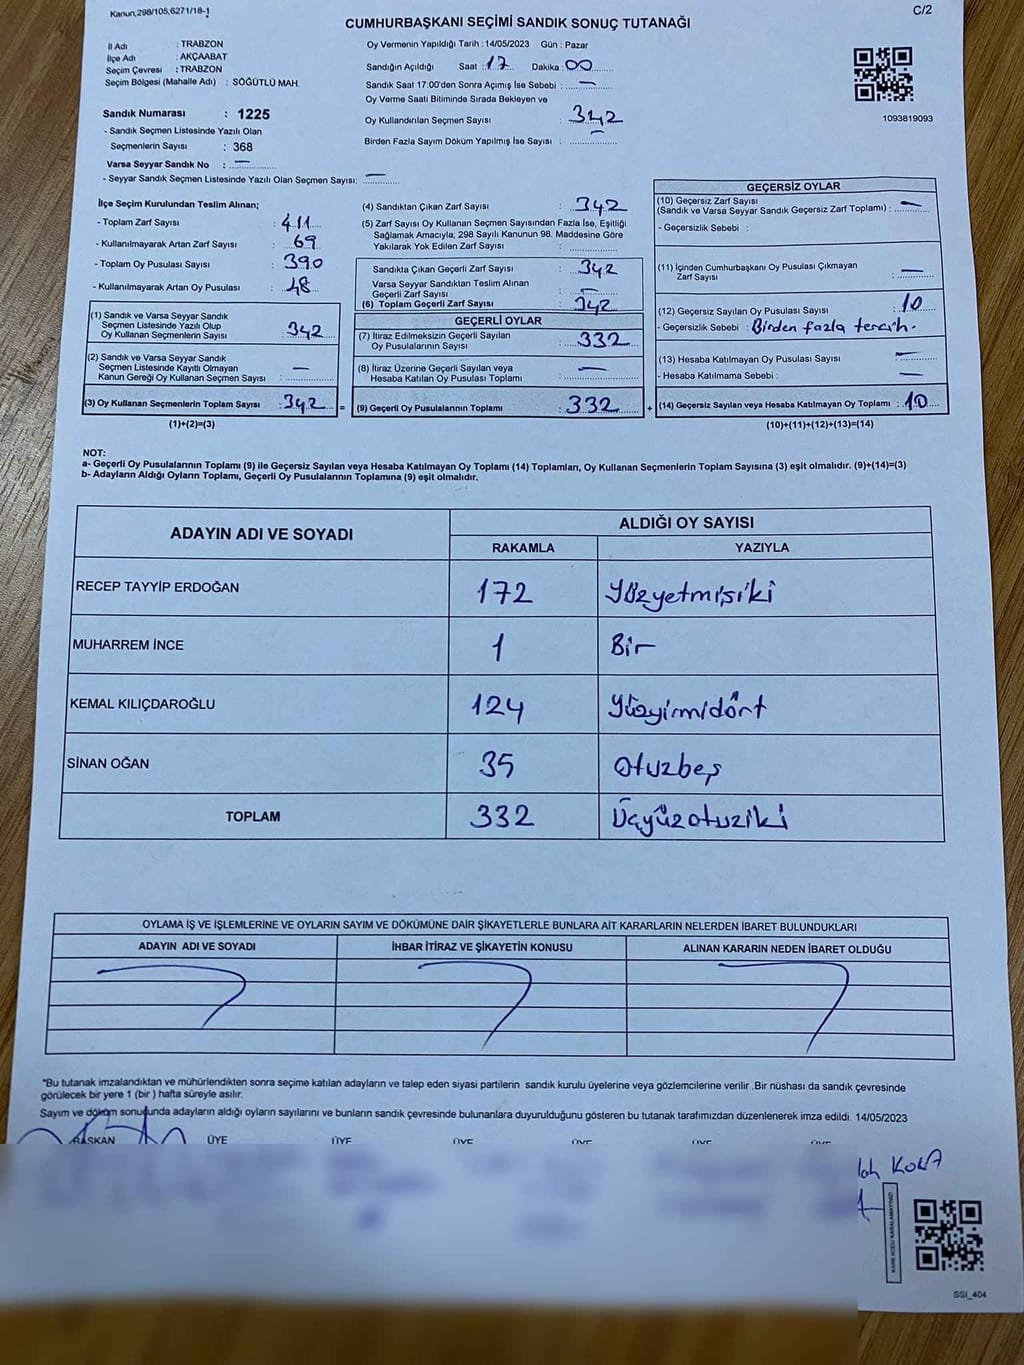 Kanun,298/105,6271/18-1
C/2
CUMHURBAŞKANI SEÇİMİ SANDIK SONUÇ TUTANAĞI
İl Adı : TRABZON
İlçe Adı : AKÇAABAT
Seçim Çevresi : TRABZON
Seçim Bölgesi (Mahalle Adı) : SÖĞÜTLÜ MAH.
Sandık Numarası : 1225
- Sandık Seçmen Listesinde Yazılı Olan
Seçmenlerin Sayısı : 368
Varsa Seyyar Sandık No : —
- Seyyar Sandık Seçmen Listesinde Yazılı Olan Seçmen Sayısı: —
Oy Vermenin Yapıldığı Tarih : 14/05/2023 Gün : Pazar
Sandığın Açıldığı Saat : 17 Dakika : 00
Sandık Saat 17:00'den Sonra Açımış İse Sebebi : —
Oy Verme Saati Bitiminde Sırada Bekleyen ve
Oy Kullandırılan Seçmen Sayısı : 342
Birden Fazla Sayım Döküm Yapılmış İse Sayısı : —
1093819093
İlçe Seçim Kurulundan Teslim Alınan;
- Toplam Zarf Sayısı : 411
- Kullanılmayarak Artan Zarf Sayısı : 69
- Toplam Oy Pusulası Sayısı : 390
- Kullanılmayarak Artan Oy Pusulası : 48
(1) Sandık ve Varsa Seyyar Sandık
Seçmen Listesinde Yazılı Olup
Oy Kullanan Seçmenlerin Sayısı : 342
(2) Sandık ve Varsa Seyyar Sandık
Seçmen Listesinde Kayıtlı Olmayan
Kanun Gereği Oy Kullanan Seçmen Sayısı : —
(3) Oy Kullanan Seçmenlerin Toplam Sayısı : 342 =
(1)+(2)=(3)
(4) Sandıktan Çıkan Zarf Sayısı : 342
(5) Zarf Sayısı Oy Kullanan Seçmen Sayısından Fazla İse, Eşitliği
Sağlamak Amacıyla; 298 Sayılı Kanunun 98. Maddesine Göre
Yakılarak Yok Edilen Zarf Sayısı :
Sandıkta Çıkan Geçerli Zarf Sayısı : 342
Varsa Seyyar Sandıktan Teslim Alınan
Geçerli Zarf Sayısı : —
(6) Toplam Geçerli Zarf Sayısı : 342
GEÇERLİ OYLAR
(7) İtiraz Edilmeksizin Geçerli Sayılan
Oy Pusulalarının Sayısı : 332
(8) İtiraz Üzerine Geçerli Sayılan veya
Hesaba Katılan Oy Pusulası Toplamı : —
(9) Geçerli Oy Pusulalarının Toplamı : 332 +
GEÇERSİZ OYLAR
(10) Geçersiz Zarf Sayısı
(Sandık ve Varsa Seyyar Sandık Geçersiz Zarf Toplamı) : —
- Geçersizlik Sebebi :
(11) İçinden Cumhurbaşkanı Oy Pusulası Çıkmayan
Zarf Sayısı : —
(12) Geçersiz Sayılan Oy Pusulası Sayısı : 10
- Geçersizlik Sebebi : Birden fazla tercih.
(13) Hesaba Katılmayan Oy Pusulası Sayısı : —
- Hesaba Katılmama Sebebi : —
(14) Geçersiz Sayılan veya Hesaba Katılmayan Oy Toplamı : 10
(10)+(11)+(12)+(13)=(14)
NOT:
a- Geçerli Oy Pusulalarının Toplamı (9) ile Geçersiz Sayılan veya Hesaba Katılmayan Oy Toplamı (14) Toplamları, Oy Kullanan Seçmenlerin Toplam Sayısına (3) eşit olmalıdır. (9)+(14)=(3)
b- Adayların Aldığı Oyların Toplamı, Geçerli Oy Pusulalarının Toplamına (9) eşit olmalıdır.
ADAYIN ADI VE SOYADI ALDIĞI OY SAYISI
RAKAMLA YAZIYLA
RECEP TAYYİP ERDOĞAN 172 Yüzyetmişiki
MUHARREM İNCE 1 Bir
KEMAL KILIÇDAROĞLU 124 Yüzyirmidört
SİNAN OĞAN 35 Otuzbeş
TOPLAM 332 Üçyüzotuziki
OYLAMA İŞ VE İŞLEMLERİNE VE OYLARIN SAYIM VE DÖKÜMÜNE DAİR ŞİKAYETLERLE BUNLARA AİT KARARLARIN NELERDEN İBARET BULUNDUKLARI
ADAYIN ADI VE SOYADI İHBAR İTİRAZ VE ŞİKAYETİN KONUSU ALINAN KARARIN NEDEN İBARET OLDUĞU
*Bu tutanak imzalandıktan ve mühürlendikten sonra seçime katılan adayların ve talep eden siyasi partilerin sandık kurulu üyelerine veya gözlemcilerine verilir .Bir nüshası da sandık çevresinde
görülecek bir yere 1 (bir ) hafta süreyle asılır.
Sayım ve döküm sonucunda adayların aldığı oyların sayılarını ve bunların sandık çevresinde bulunanlara duyurulduğunu gösteren bu tutanak tarafımızdan düzenlenerek imza edildi. 14/05/2023
BAŞKAN ÜYE ÜYE ÜYE ÜYE ÜYE ÜYE
KARE KODU KARALAMAYINIZ!
SSI_404